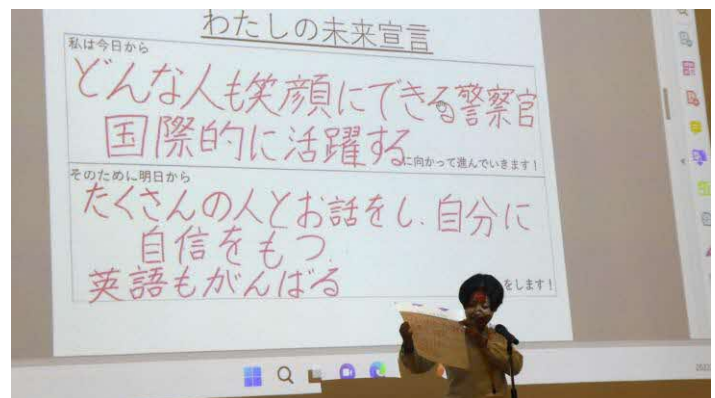 わたしの未来宣言
私は今日から
どんな人も笑顔にできる警察官
国際的に活躍する に向かって進んでいきます！
そのために明日から
たくさんの人とお話をし、自分に
自信をもつ
英語もがんばる をします！